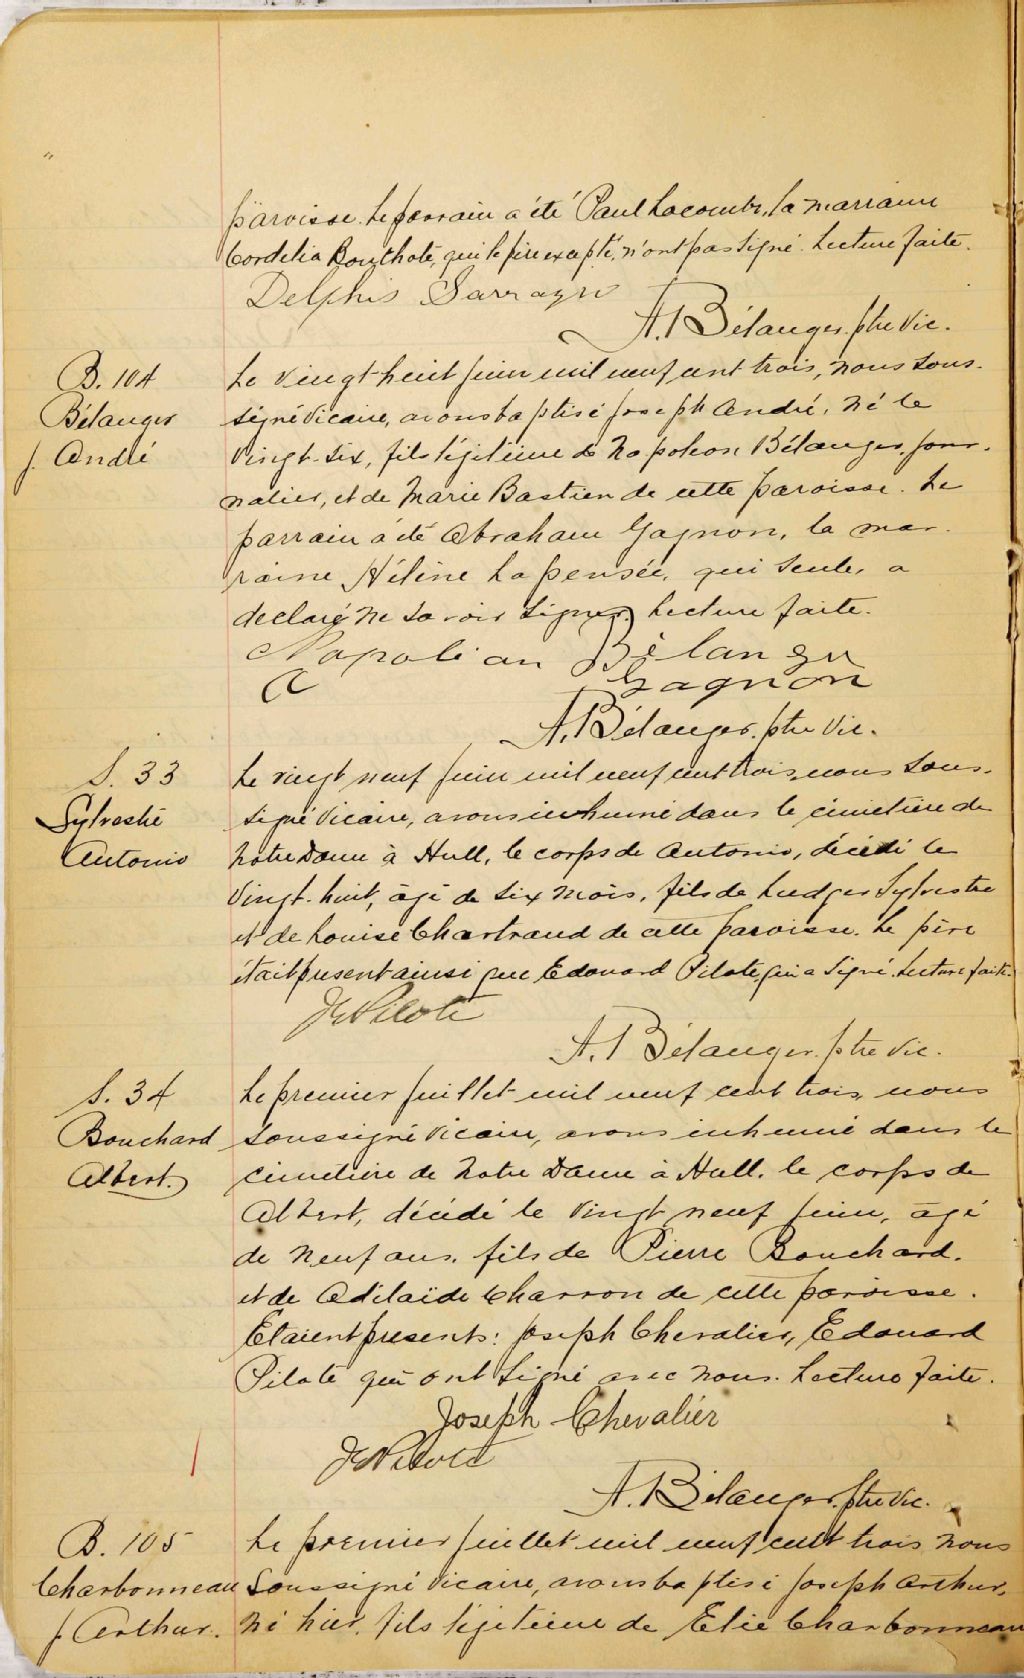 paroisse. Le parrain a été Paul Lacombe, la marraine
Cordelia Bouthote, qui le père excepté, n'ont pas signé. Lecture faite.
Delphis Sarrazin
A. Bélanger. ptre Vic.
B. 104
Bélanger
J. André
Le vingt huit juin mil neuf cent trois, nous sous-
signé vicaire, avons baptisé Joseph André, né le
vingt-six, fils légitime de Napoléon Bélanger, jour-
nalier, et de Marie Bastien de cette paroisse. Le
parrain a été Abraham Gagnon, la mar-
raine Hélène Lapensée, qui seule, a
declaré ne savoir signer. Lecture faite.
Napoléan Bélanger
A Gagnon
A. Bélanger. ptre Vic.
S. 33
Sylvestre
Antonio
Le vingt neuf juin mil neuf cent trois, nous sous-
signé Vicaire, avons inhumé dans le cimetière de
Notre Dame à Hull, le corps de Antonio, décédé le
vingt-huit, âgé de six mois, fils de Ludger Sylvestre
et de Louise Chartrand de cette paroisse. Le père
était présent ainsi que Edouard Pilote, qui a signé. Lecture faite.
JE Pilote
A. Bélanger. ptre Vic.
S. 34
Bouchard
Albert.
Le premier juillet mil neuf cent trois, nous
soussigné vicaire, avons inhumé dans le
cimetière de Notre Dame à Hull, le corps de
Albert, décédé le vingt neuf juin, âgé
de neuf ans, fils de Pierre Bouchard.
et de Adélaïde Charron de cette paroisse.
Etaient présents: Joseph Chevalier, Edouard
Pilote qui ont signé avec nous. Lecture faite.
Joseph Chevalier
JE Pilote
A. Bélanger. ptre Vic.
B. 105
Charbonneau
J. Arthur.
Le premier juillet mil neuf cent trois nous
soussigné vicaire, avons baptisé Joseph Arthur,
né hier, fils légitime de Elie Charbonneau